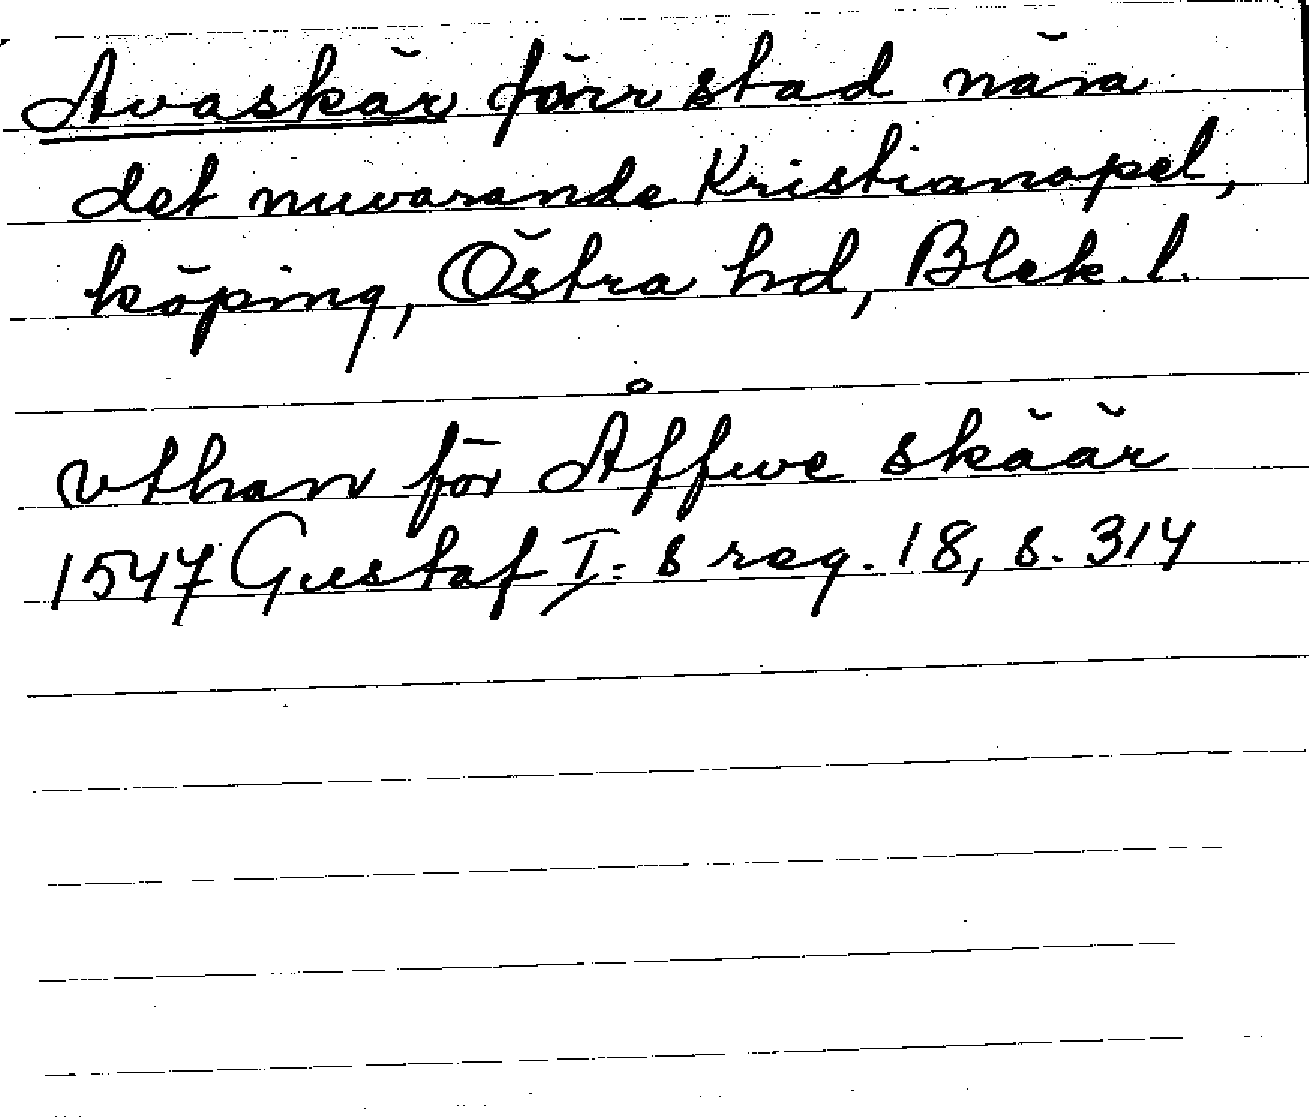 Avaskär förr stad nära
det nuvarande Kristianopel,
köping, Östra hd, Blek. l.
vthan för Åffwe skäär
1547 Gustaf I:s reg. 18, s. 314